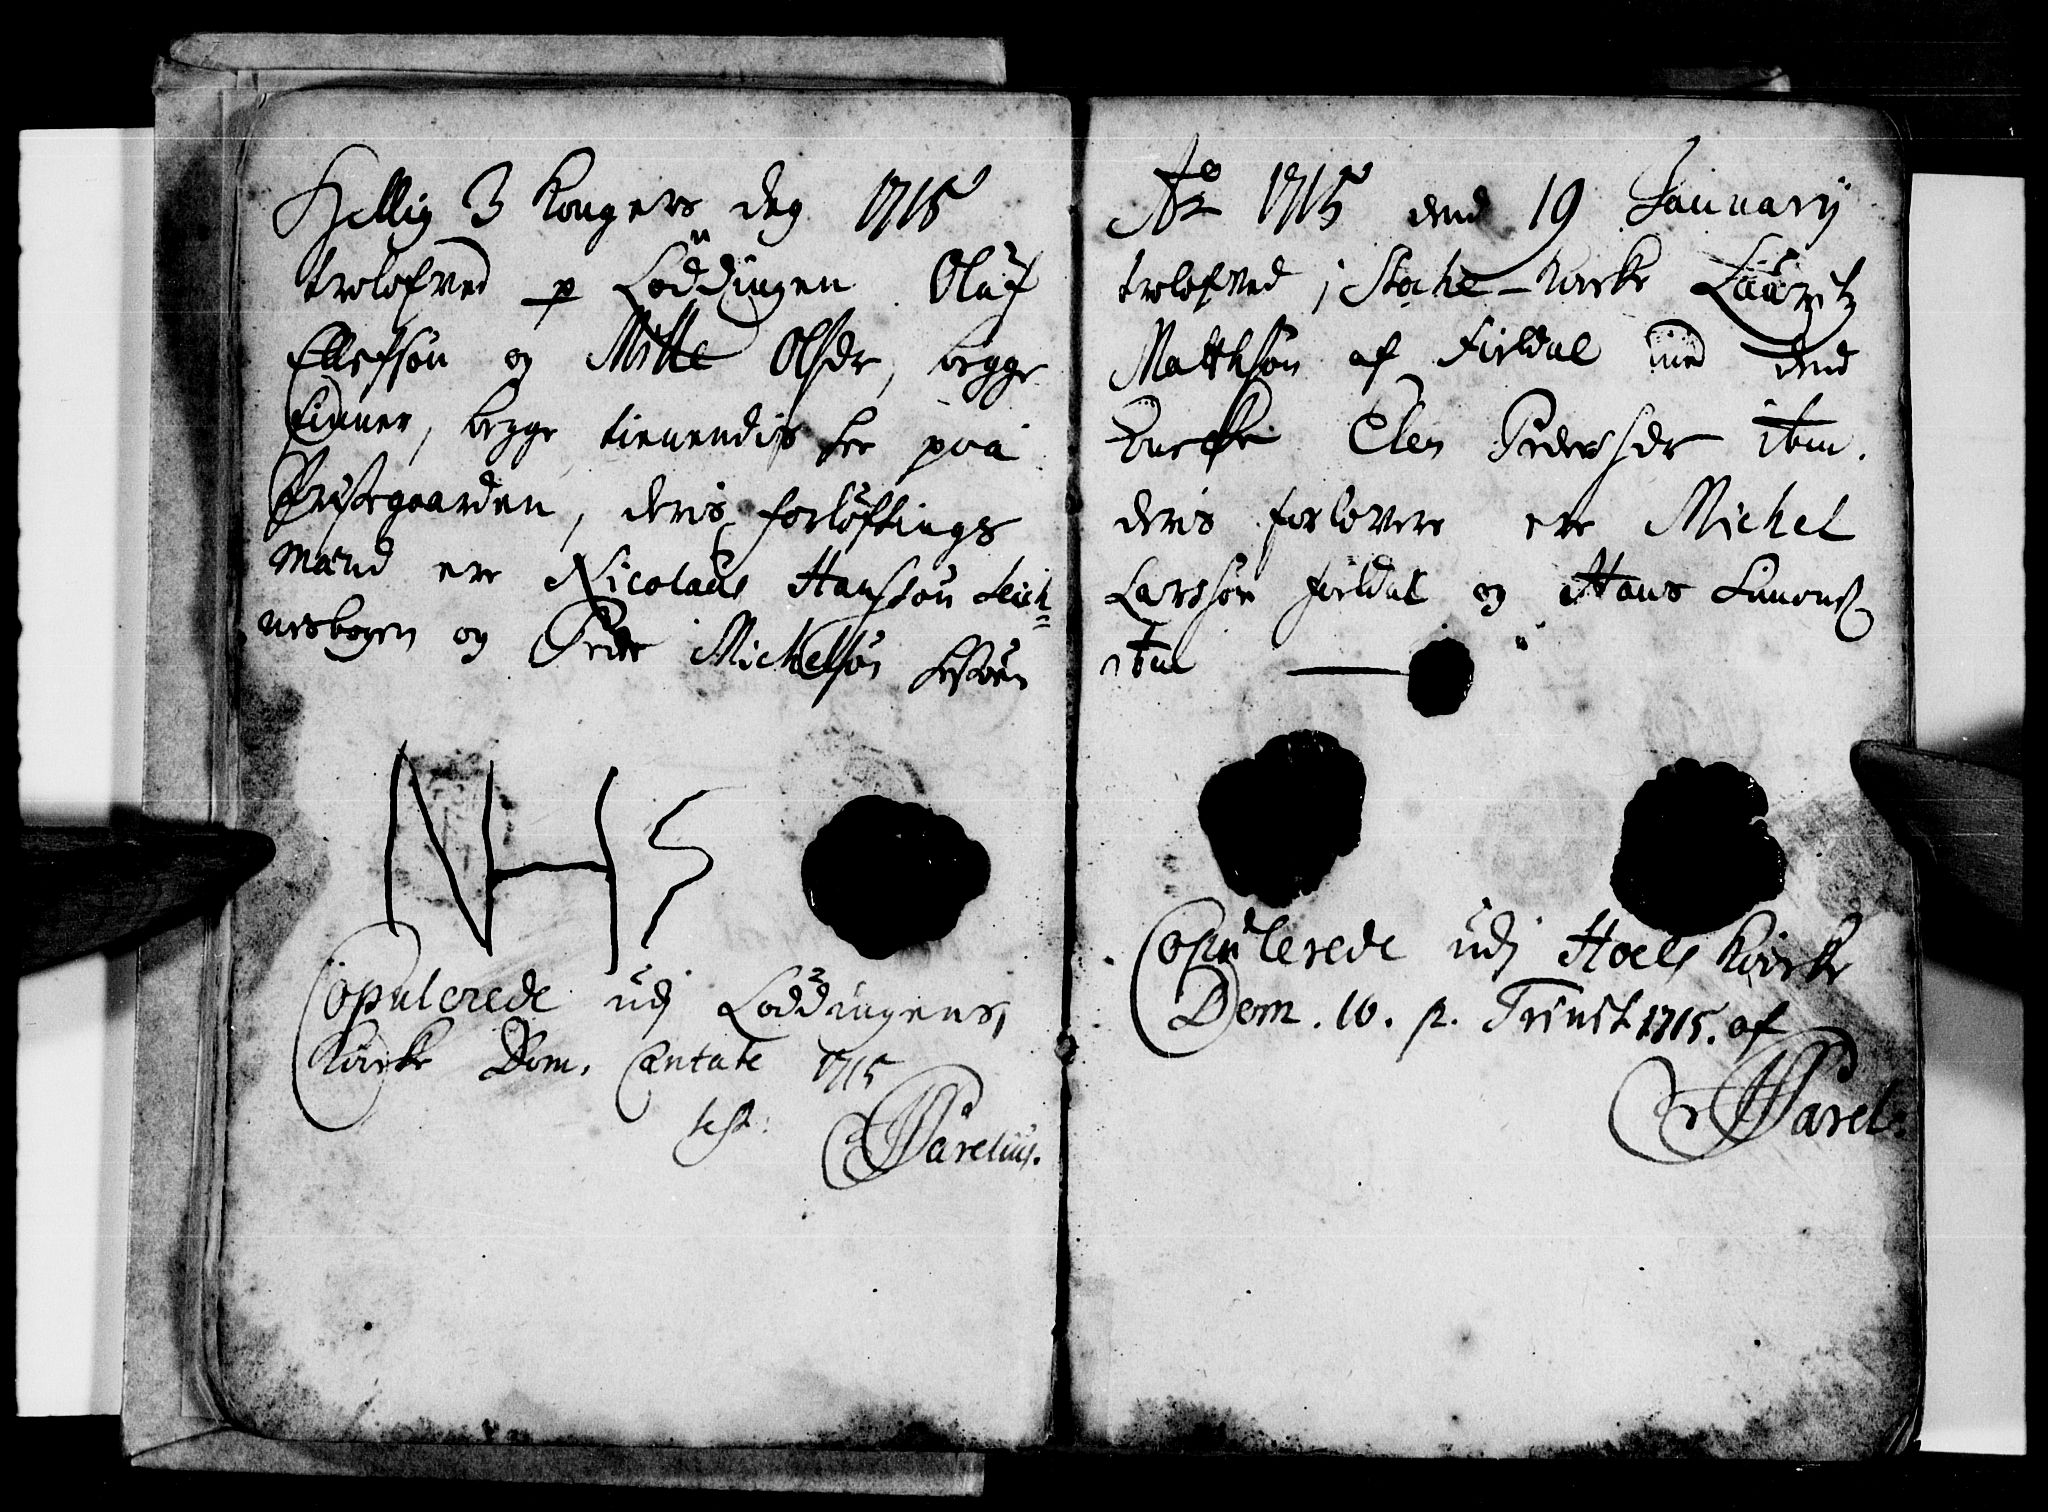 Hellig 3 Kongers dag 1715
trolofved p Loddingen Oluf
Ellefsøn og Mitte Olsdr, begge
Finner, begge tienendis her paa
Præstegaarden, deris forløftings
mænd ere Nicolaus Hanssøn Leich=
nesbogen og Peder Michelsøn
NHS
Copulerede udj Loddingens
Kircke Dom. Cantate 1715
test:
Ao 1715 dend 19 January
trolofved j Stche-Kircke Lauritz
Matthsøn af Fieldal med dend
Encke Elen Pedersdr ibm.
deris forlovere ere Michel
Larssøn Fieldal og Hans Simons
ibm
Copulerede udj Hoels Kircke
Dom. 10. p. Trinit 1715. af